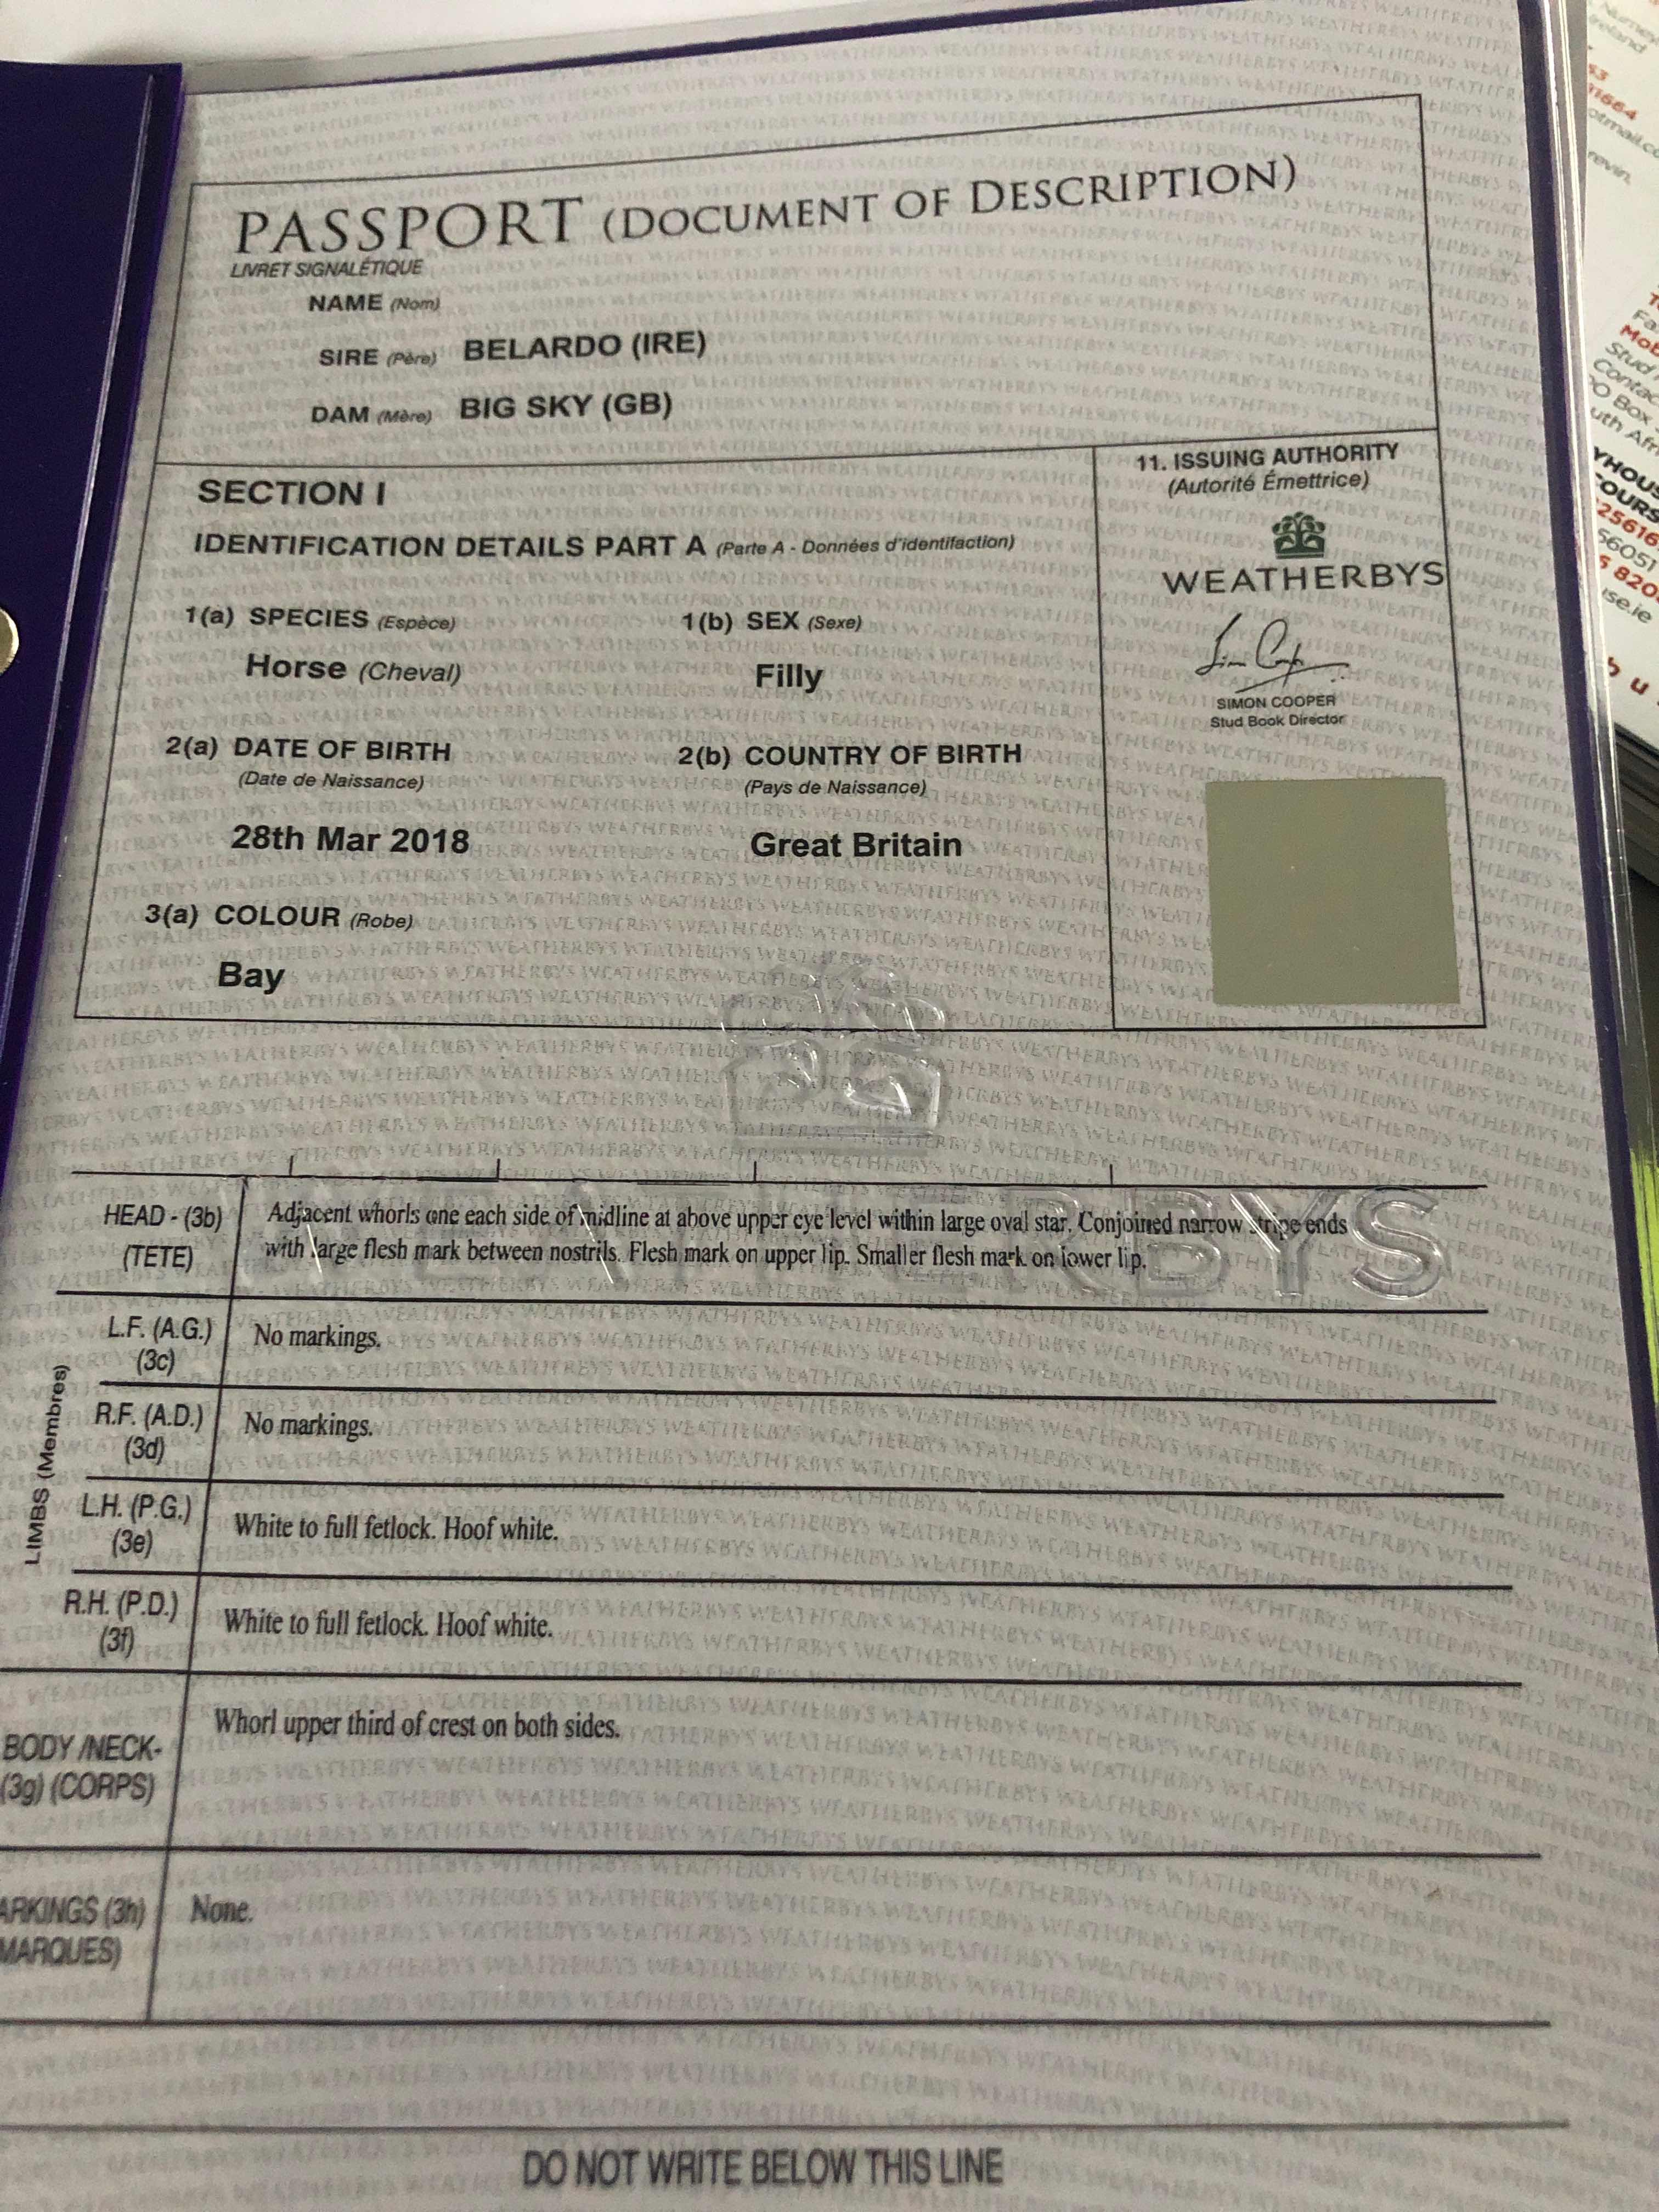 PASSPORT (DOCUMENT OF DESCRIPTION)
LIVRET SIGNALÉTIQUE
NAME (Nom)
SIRE (Père) BELARDO (IRE)
DAM (Mère) BIG SKY (GB)
SECTION I
IDENTIFICATION DETAILS PART A (Parte A - Données d'identifaction)
1(a) SPECIES (Espèce) 1(b) SEX (Sexe)
Horse (Cheval) Filly
2(a) DATE OF BIRTH 2(b) COUNTRY OF BIRTH
(Date de Naissance) (Pays de Naissance)
28th Mar 2018 Great Britain
3(a) COLOUR (Robe)
Bay
11. ISSUING AUTHORITY
(Autorité Émettrice)
WEATHERBYS
SIMON COOPER
Stud Book Director
HEAD - (3b) Adjacent whorls one each side of midline at above upper eye level within large oval star. Conjoined narrow stripe ends
(TETE) with large flesh mark between nostrils. Flesh mark on upper lip. Smaller flesh mark on lower lip.
LIMBS (Membres)
L.F. (A.G.) No markings.
(3c)
R.F. (A.D.) No markings.
(3d)
L.H. (P.G.) White to full fetlock. Hoof white.
(3e)
R.H. (P.D.) White to full fetlock. Hoof white.
(3f)
BODY /NECK- Whorl upper third of crest on both sides.
(3g) (CORPS)
ARKINGS (3h) None.
MARQUES)
DO NOT WRITE BELOW THIS LINE